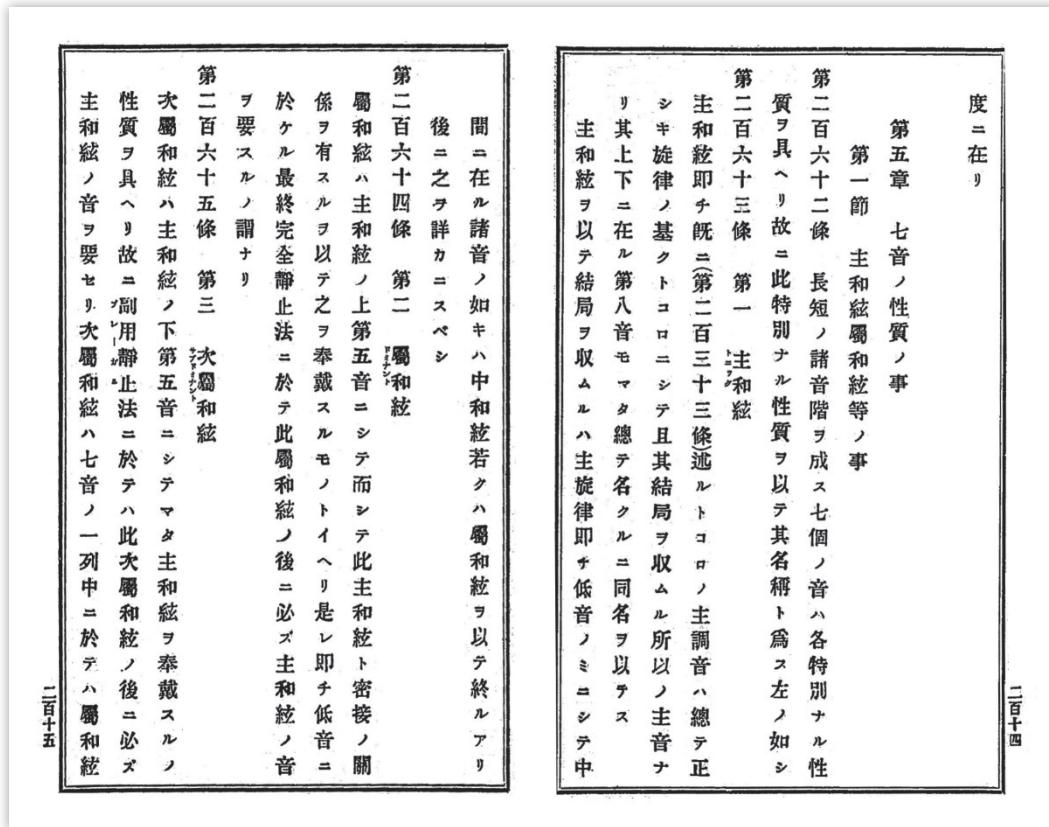 度ニ在リ
第五章　七音ノ性質ノ事
第一節　主和絃屬和絃等ノ事
第二百六十二條　長短ノ諸音階ヲ成ス七個ノ音ハ各特別ナル性
質ヲ具ヘリ故ニ此特別ナル性質ヲ以テ其名稱ト爲ス左ノ如シ
第二百六十三條　第一　主和絃
トニック
主和絃即チ旣ニ(第二百三十三條)述ルトコロノ主調音ハ總テ正
シキ旋律ノ基クトコロニシテ且其結局ヲ収ムル所以ノ主音ナ
リ其上下ニ在ル第八音モマタ總テ名クルニ同名ヲ以テス
主和絃ヲ以テ結局ヲ収ムルハ主旋律即チ低音ノミニシテ中
二百十四
間ニ在ル諸音ノ如キハ中和絃若クハ屬和絃ヲ以テ終ルアリ
後ニ之ヲ詳カニスベシ
第二百六十四條　第二　屬和絃
ドミナント
屬和絃ハ主和絃ノ上第五音ニシテ而シテ此主和絃ト密接ノ關
係ヲ有スルヲ以テ之ヲ奉戴スルモノトイヘリ是レ即チ低音ニ
於ケル最終完全靜止法ニ於テ此屬和絃ノ後ニ必ズ主和絃ノ音
ヲ要スルノ謂ナリ
第二百六十五條　第三　次屬和絃
サブドミナント
次屬和絃ハ主和絃ノ下第五音ニシテマタ主和絃ヲ奉戴スルノ
性質ヲ具ヘリ故ニ副用靜止法ニ於テハ此次屬和絃ノ後ニ必ズ
主和絃ノ音ヲ要セリ次屬和絃ハ七音ノ一列中ニ於テハ屬和絃
二百十五